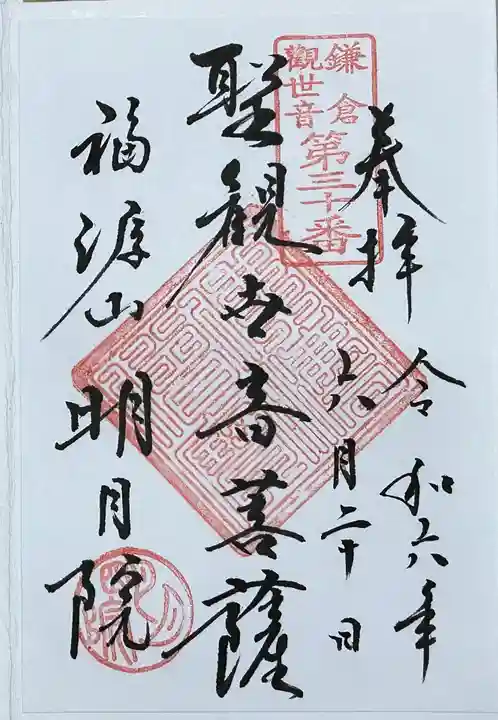 鎌倉
觀世音
第三十番
奉拝
令和六年
六月二十日
聖観世音菩薩
福源山
明月院